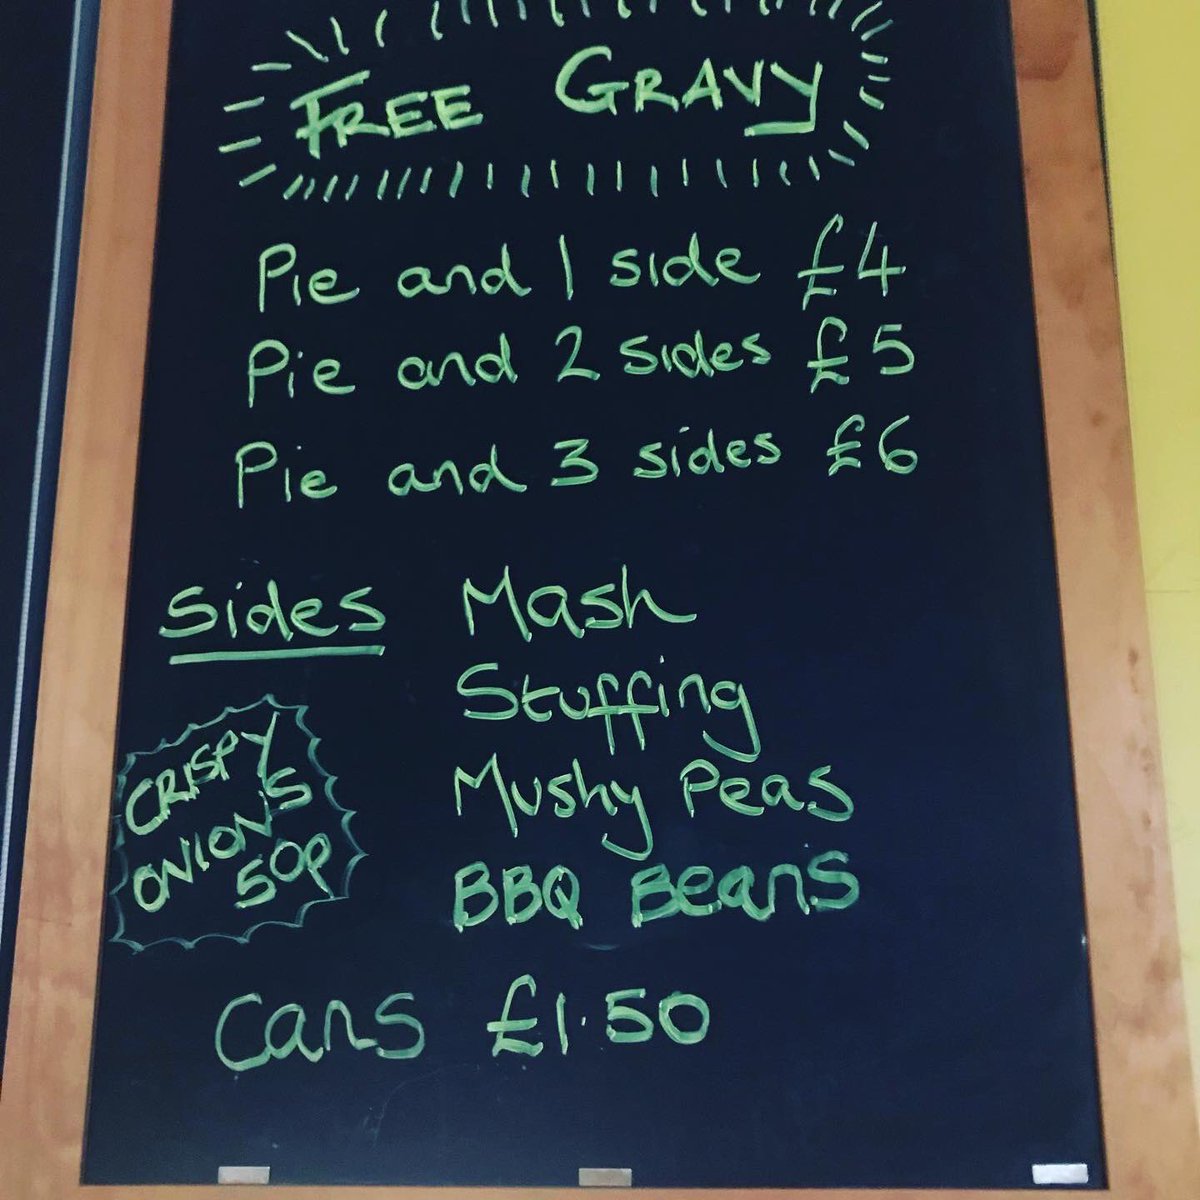 FREE GRAVY
Pie and 1 side £4
Pie and 2 sides £5
Pie and 3 sides £6
Sides Mash
Stuffing
Mushy Peas
BBQ Beans
CRISPY
ONIONS
50P
Cans £1.50